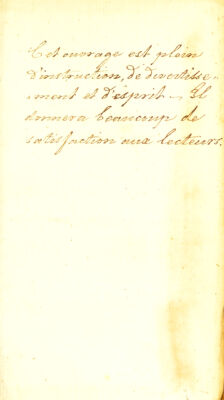 Cet ouvrage est plein
d'instruction, de divertisse-
-ment et d'esprit - Il
donnera beaucoup de
satisfaction aux lecteurs.